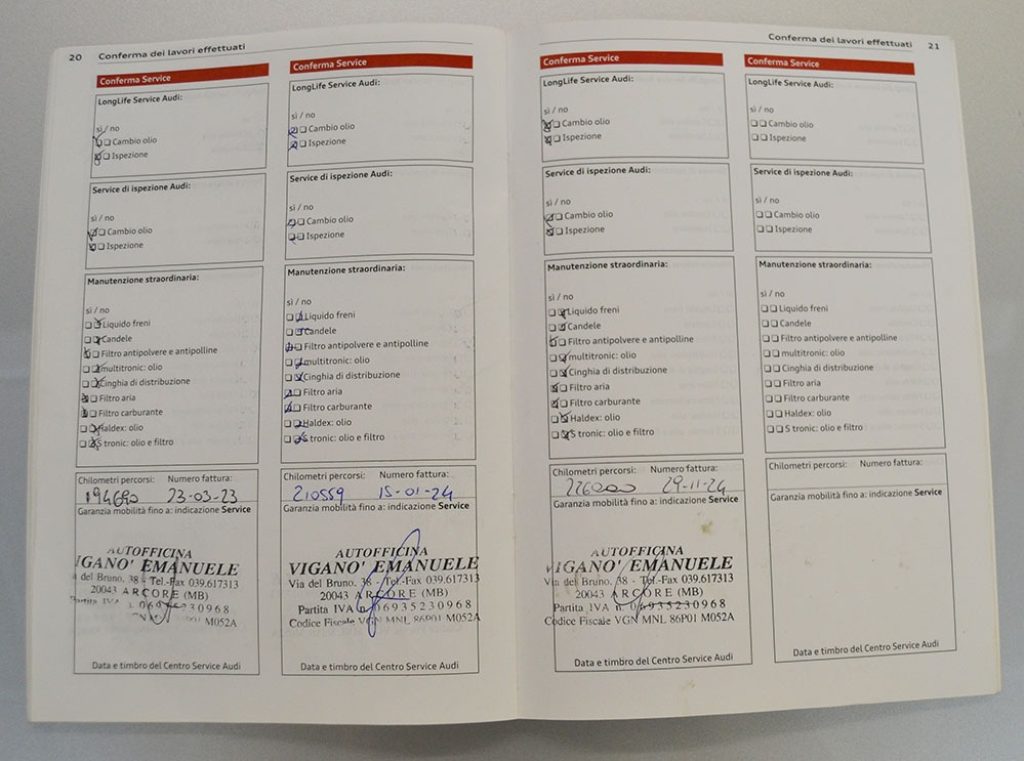 20 Conferma dei lavori effettuati
Conferma Service
LongLife Service Audi:
sì / no
Cambio olio
Ispezione
Service di ispezione Audi:
sì / no
Cambio olio
Ispezione
Manutenzione straordinaria:
sì / no
Liquido freni
Candele
Filtro antipolvere e antipolline
multitronic: olio
Cinghia di distribuzione
Filtro aria
Filtro carburante
Haldex: olio
S tronic: olio e filtro
Chilometri percorsi: Numero fattura:
194690 23-03-23
Garanzia mobilità fino a: indicazione Service
AUTOFFICINA
VIGANO' EMANUELE
Via del Bruno, 38 - Tel.-Fax 039.617313
20043 ARCORE (MB)
Partita IVA 06935230968
M052A
Data e timbro del Centro Service Audi
Conferma Service
LongLife Service Audi:
sì / no
Cambio olio
Ispezione
Service di ispezione Audi:
sì / no
Cambio olio
Ispezione
Manutenzione straordinaria:
sì / no
Liquido freni
Candele
Filtro antipolvere e antipolline
multitronic: olio
Cinghia di distribuzione
Filtro aria
Filtro carburante
Haldex: olio
S tronic: olio e filtro
Chilometri percorsi: Numero fattura:
210559 15-01-24
Garanzia mobilità fino a: indicazione Service
AUTOFFICINA
VIGANO' EMANUELE
Via del Bruno, 38 - Tel.-Fax 039.617313
20043 ARCORE (MB)
Partita IVA n 06935230968
Codice Fiscale VGN MNL 86P01 M052A
Data e timbro del Centro Service Audi
Conferma dei lavori effettuati 21
Conferma Service
LongLife Service Audi:
sì / no
Cambio olio
Ispezione
Service di ispezione Audi:
sì / no
Cambio olio
Ispezione
Manutenzione straordinaria:
sì / no
Liquido freni
Candele
Filtro antipolvere e antipolline
multitronic: olio
Cinghia di distribuzione
Filtro aria
Filtro carburante
Haldex: olio
S tronic: olio e filtro
Chilometri percorsi: Numero fattura:
226000 29-11-24
Garanzia mobilità fino a: indicazione Service
AUTOFFICINA
VIGANO' EMANUELE
Via del Bruno, 38 - Tel.-Fax 039.617313
20043 ARCORE (MB)
Partita IVA n 06935230968
Codice Fiscale VGN MNL 86P01 M052A
Data e timbro del Centro Service Audi
Conferma Service
LongLife Service Audi:
sì / no
Cambio olio
Ispezione
Service di ispezione Audi:
sì / no
Cambio olio
Ispezione
Manutenzione straordinaria:
sì / no
Liquido freni
Candele
Filtro antipolvere e antipolline
multitronic: olio
Cinghia di distribuzione
Filtro aria
Filtro carburante
Haldex: olio
S tronic: olio e filtro
Chilometri percorsi: Numero fattura:
Garanzia mobilità fino a: indicazione Service
Data e timbro del Centro Service Audi